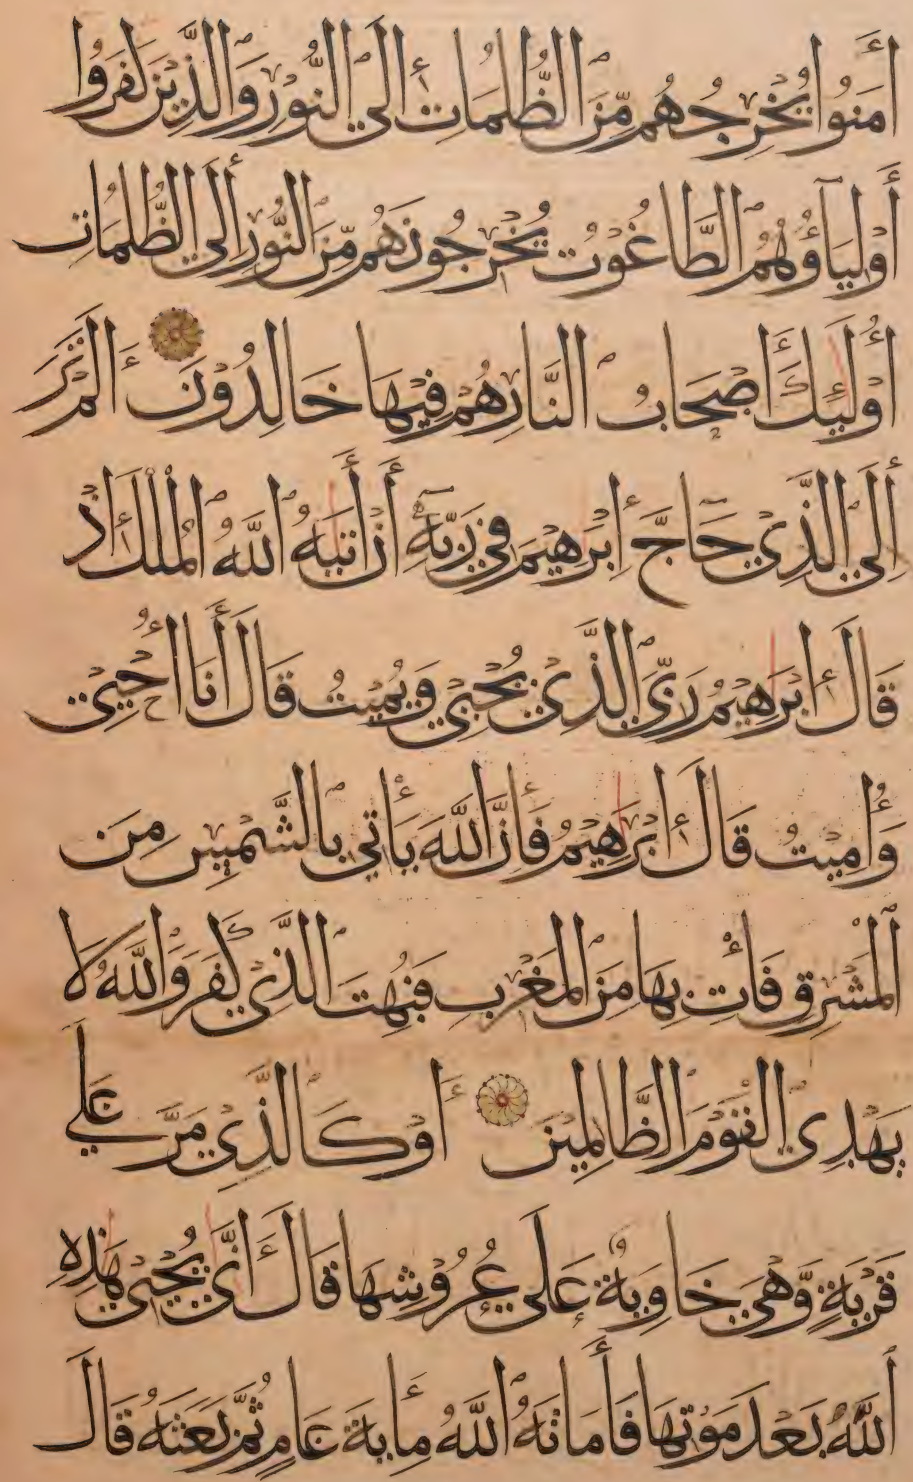 اٰمَنُوا يُخْرِجُهُم مِّنَ الظُّلُمَاتِ إِلَى النُّوْرِ وَالَّذِيْنَ كَفَرُوا
أَوْلِيَآؤُهُمُ الطَّاغُوْتُ يُخْرِجُوْنَهُم مِّنَ النُّوْرِ إِلَى الظُّلُمَاتِ
أُوْلٰئِكَ أَصْحَابُ النَّارِ هُمْ فِيْهَا خَالِدُوْنَ أَلَمْ تَرَ
إِلَى الَّذِيْ حَآجَّ إِبْرٰهِيْمَ فِيْ رَبِّهٖٓ أَنْ أٰتٰىهُ اللّٰهُ الْمُلْكَ إِذْ
قَالَ إِبْرٰهِيْمُ رَبِّيَ الَّذِيْ يُحْيِيْ وَيُمِيْتُ قَالَ أَنَا أُحْيِيْ
وَأُمِيْتُ قَالَ إِبْرٰهِيْمُ فَإِنَّ اللّٰهَ يَأْتِيْ بِالشَّمْسِ مِنَ
الْمَشْرِقِ فَأْتِ بِهَا مِنَ الْمَغْرِبِ فَبُهِتَ الَّذِيْ كَفَرَ وَاللّٰهُ لَا
يَهْدِي الْقَوْمَ الظَّالِمِيْنَ أَوْ كَالَّذِيْ مَرَّ عَلٰى
قَرْيَةٍ وَّهِيَ خَاوِيَةٌ عَلٰى عُرُوْشِهَا قَالَ أَنّٰى يُحْيِيْ هٰذِهِ
اللّٰهُ بَعْدَ مَوْتِهَا فَأَمَاتَهُ اللّٰهُ مِأيَةَ عَامٍ ثُمَّ بَعَثَهُ قَالَ